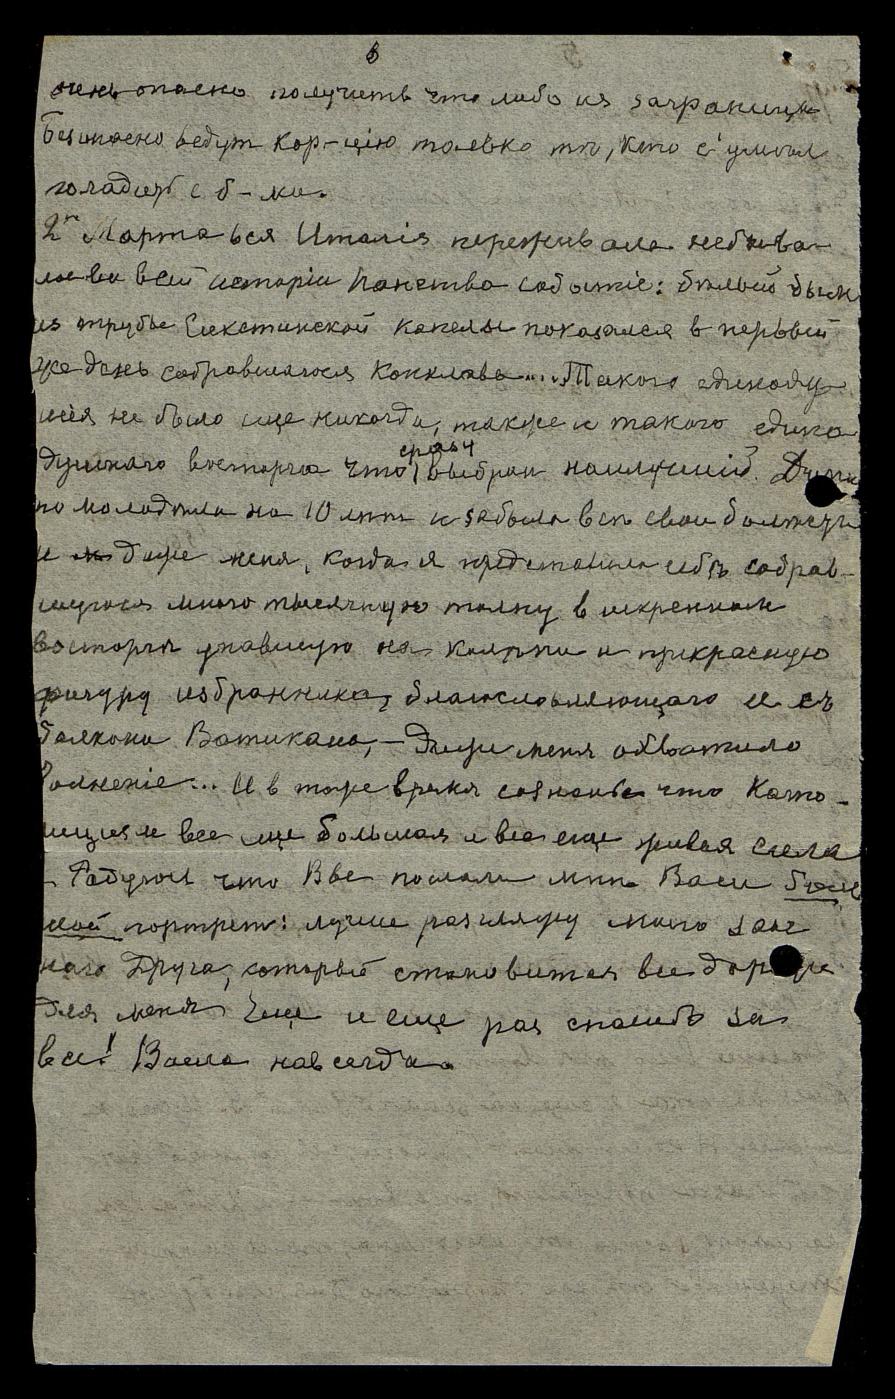 6
очень опасно получить что либо из заграницы
Безопасно ведут кор-цію только тѣ, кто с'умѣл
поладить с б-ми.
2го Марта вся Италія переживала небыва-
лое во всей исторіи Папства событіе: бѣлый дым
из трубы Сикстинской капелы показался в первый
же день собравшагося Конклава... Такого единоду
шія не было еще никогда, также и такого едино
душнаго восторга что сразу выбран наилучшій.
помолодѣла на 10 лѣт и забыла всѣ свои болѣзни
и даже меня, когда я представила себѣ собрав-
шуюся много тысячную толпу в искреннем
восторгѣ упавшую на колѣни и прекрасную
фигуру избранника, благословляющаго ее съ
балкона Ватикана, – даже меня охватило
волненіе... И в тоже время сознанье что Като-
лицизм все еще большая и все еще живая сила
– Радуюсь что Вы послали мнѣ Ваш боль
шой портрет: лучше разгляжу моего заоч
наго Друга, который становится все дороже
для меня Еще и еще раз спасибо за
все! Ваша навсегда.